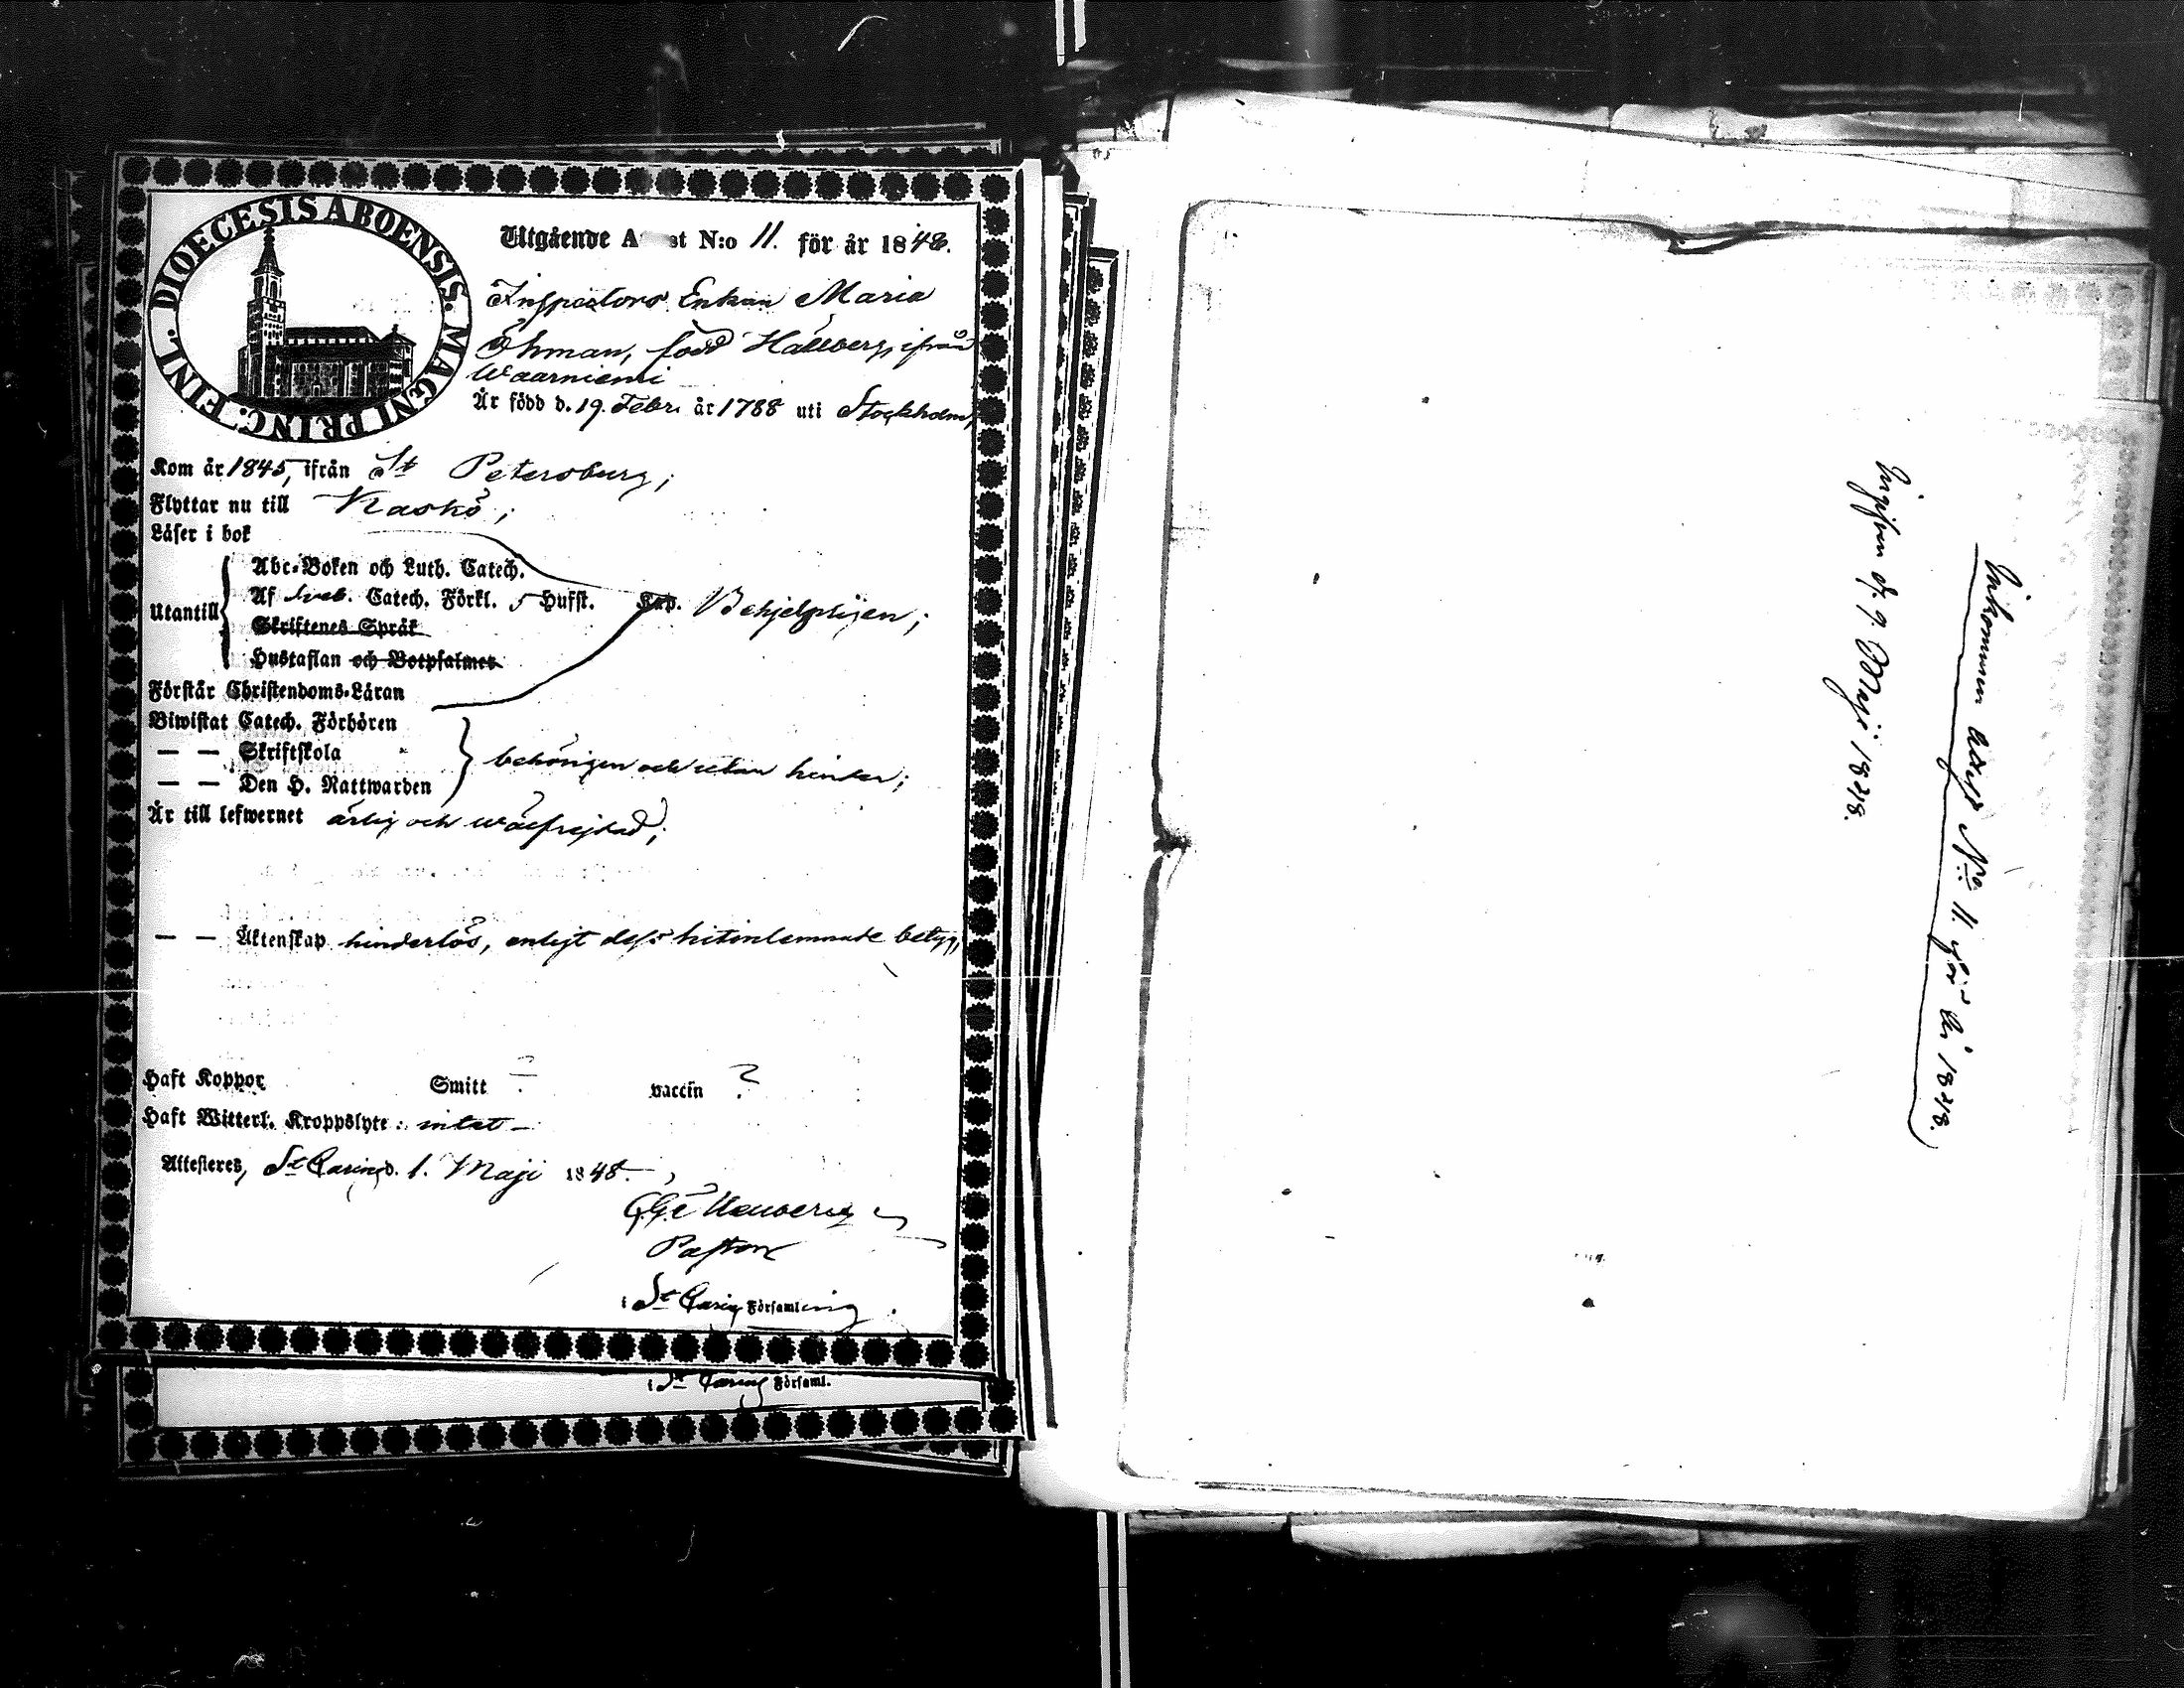 DIOECESIS ABOENSIS. MAGNI PRINC. FINL.
Utgående A st N:o 11. för år 1848.
Inspectors Enkan Maria
Öhman, född Hällberg, ifrån
Waarniemi
Är född d. 19. Febr. år 1788 uti Stockholm,
Kom år 1845, ifrån St Petersburg;
Flyttar nu till Kaskö;
Läser i bok
Abc-Boken och Luth. Catech.
Utantill Af Sveb. Catech. Förkl. 5 Hufst. Kap. Behjelpligen;
Skriftenes Språk
Hustaflan och Botpsalmer
Förstår Christendoms-Läran
Biwistat Catech. Förhören
— — Skriftskola behörigen och utan hinder;
— — Den H. Nattwarden
Är till lefwernet ärlig och wälfrejdad;
— — Äktenskap hinderlös, enligt dess hitinlemnade betyg,
Haft Koppor Smitt ? vaccin ?
Haft Witterl. Kroppslyte: intet —
Attesteres, St Carins d. 1. Maji 1848.
Pastor
i St Carins Församling
i St Carins Församl.
Inkommen attest No 11. för år 1848.
Ingifven d. 9. Maji 1848.